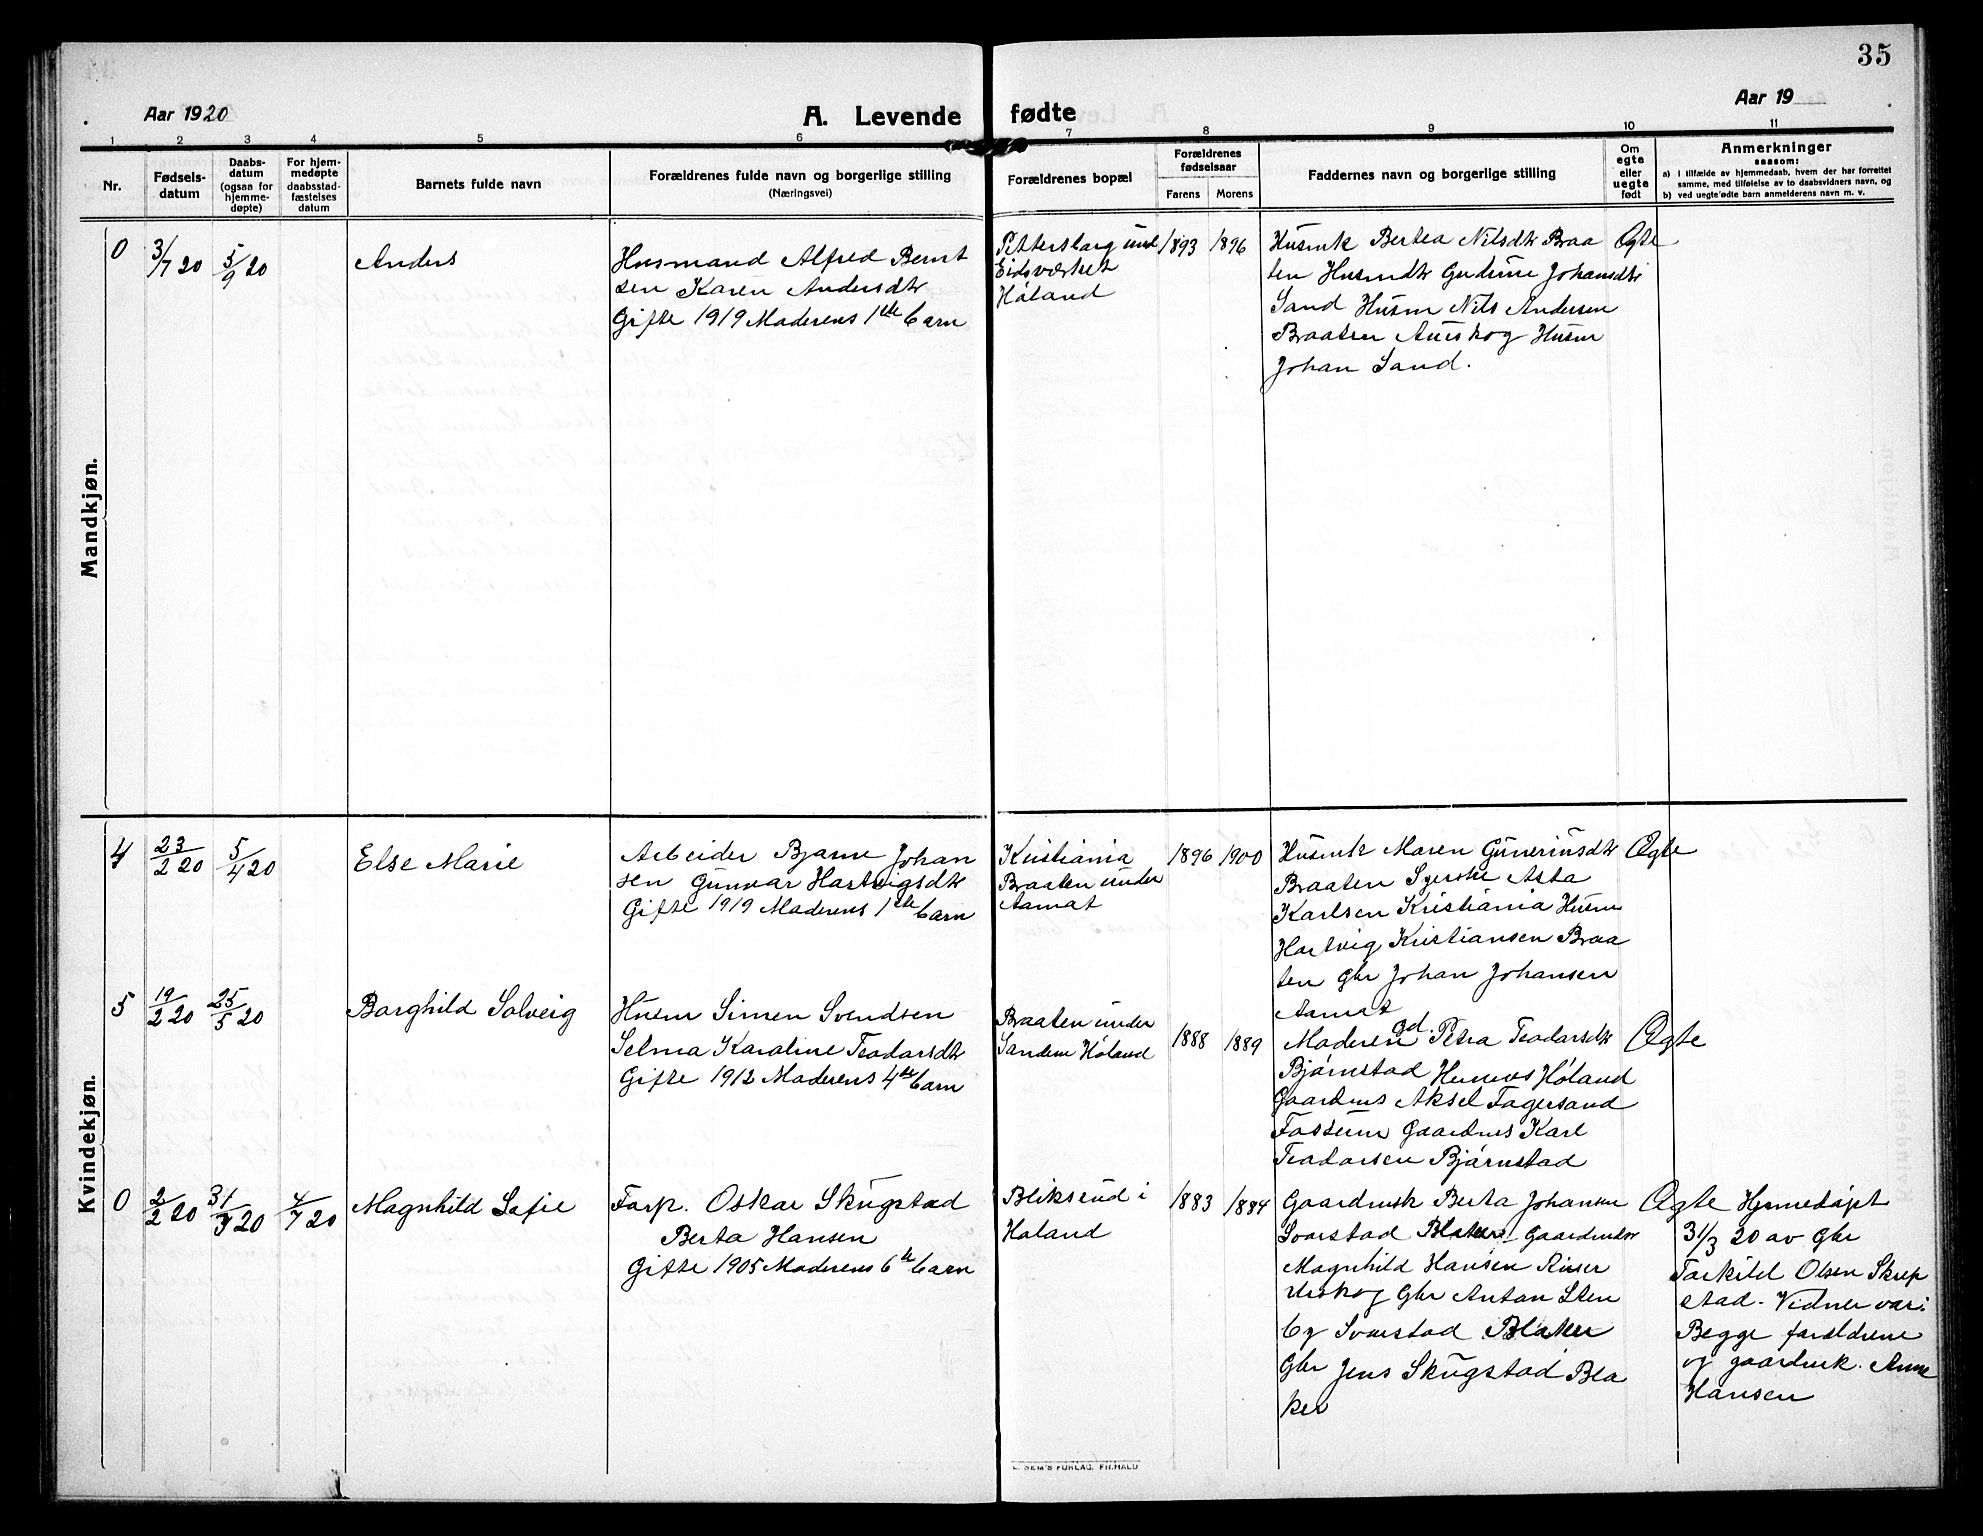 35
Aar 1920
A. Levende fødte
Aar 19
1 2 3 4 5 6 7 8 9 10 11
Nr.
Fødsels-
datum
Daabs-
datum
(ogsaa for
hjemme-
døpte)
For hjem-
medøpte
daabsstad-
fæstelses
datum
Barnets fulde navn
Forældrenes fulde navn og borgerlige stilling
(Næringsvei)
Forældrenes bopæl
Forældrenes
fødselsaar
Farens Morens
Faddernes navn og borgerlige stilling
Om
egte
eller
uegte
født
Anmerkninger
saasom:
a) i tilfælde av hjemmedaab, hvem der har forrettet
samme, med tilføielse av to daabsvidners navn, og
b) ved uegte'ødte barn anmelderens navn m. v.
Mandkjøn.
0
3/7 20
5/9 20
Anders
Husmand Alfred Bernt
sen Karen Andersdtr
Gifte 1919 Moderens 1ste barn
Pettersborg und
Eidsværket
Høland
1893 1896
Husmk Bertea Nilsdtr Braa
ten Husmdtr Gudrun Johansdtr
Sand Husm Nils Andersen
Braaten Aurskog Husm
Johan Sand.
Ægte
Kvindekjøn.
4
23/2 20
5/4 20
Else Marie
Arbeider Bjarne Johan
sen Gunvor Hartvigsdtr
Gifte 1919 Moderens 1ste barn
Kristiania
Braaten under
Aamot
1896 1900
Husmk Maren Guneriusdtr
Braaten Syerske Asta
Karlsen Kristiania Husm
Hartvig Kristiansen Braa
ten Gbr Johan Johansen
Aamot
Ægte
5
19/2 20
25/5 20
Borghild Solveig
Husm Simen Svendsen
Selma Karoline Teodorsdtr
Gifte 1912 Moderens 4de barn
Braaten under
Sandem Høland
1888 1889
Moderen Gd. Petra Teodorsdtr
Bjørnstad Hemnes Høland
Gaardms Aksel Fagersand
Fossum Gaardms Karl
Teodorsen Bjørnstad
Ægte
0
2/2 20
31/3 20
4/7 20
Magnhild Sofie
Forp. Oskar Skugstad
Berta Hansen
Gifte 1905 Moderens 6te barn
Bliksrud i
Høland
1883 1884
Gaardmsk Berta Johansen
Svarstad Blaker Gaardmdtr
Magnhild Hansen Riser
Urskog Gbr Anton Sten
by Svarstad Blaker
Gbr Jens Skugstad Bla
ker
Ægte
Hjemmedøpt
31/3 20 av Gbr
Torkild Olsen Skrep
stad. Vidner var:
Begge forældrene
og gaardmk. Anne
Hansen
E. SEM'S FORLAG, FR.HALD